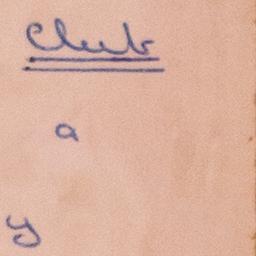 Club
a
y